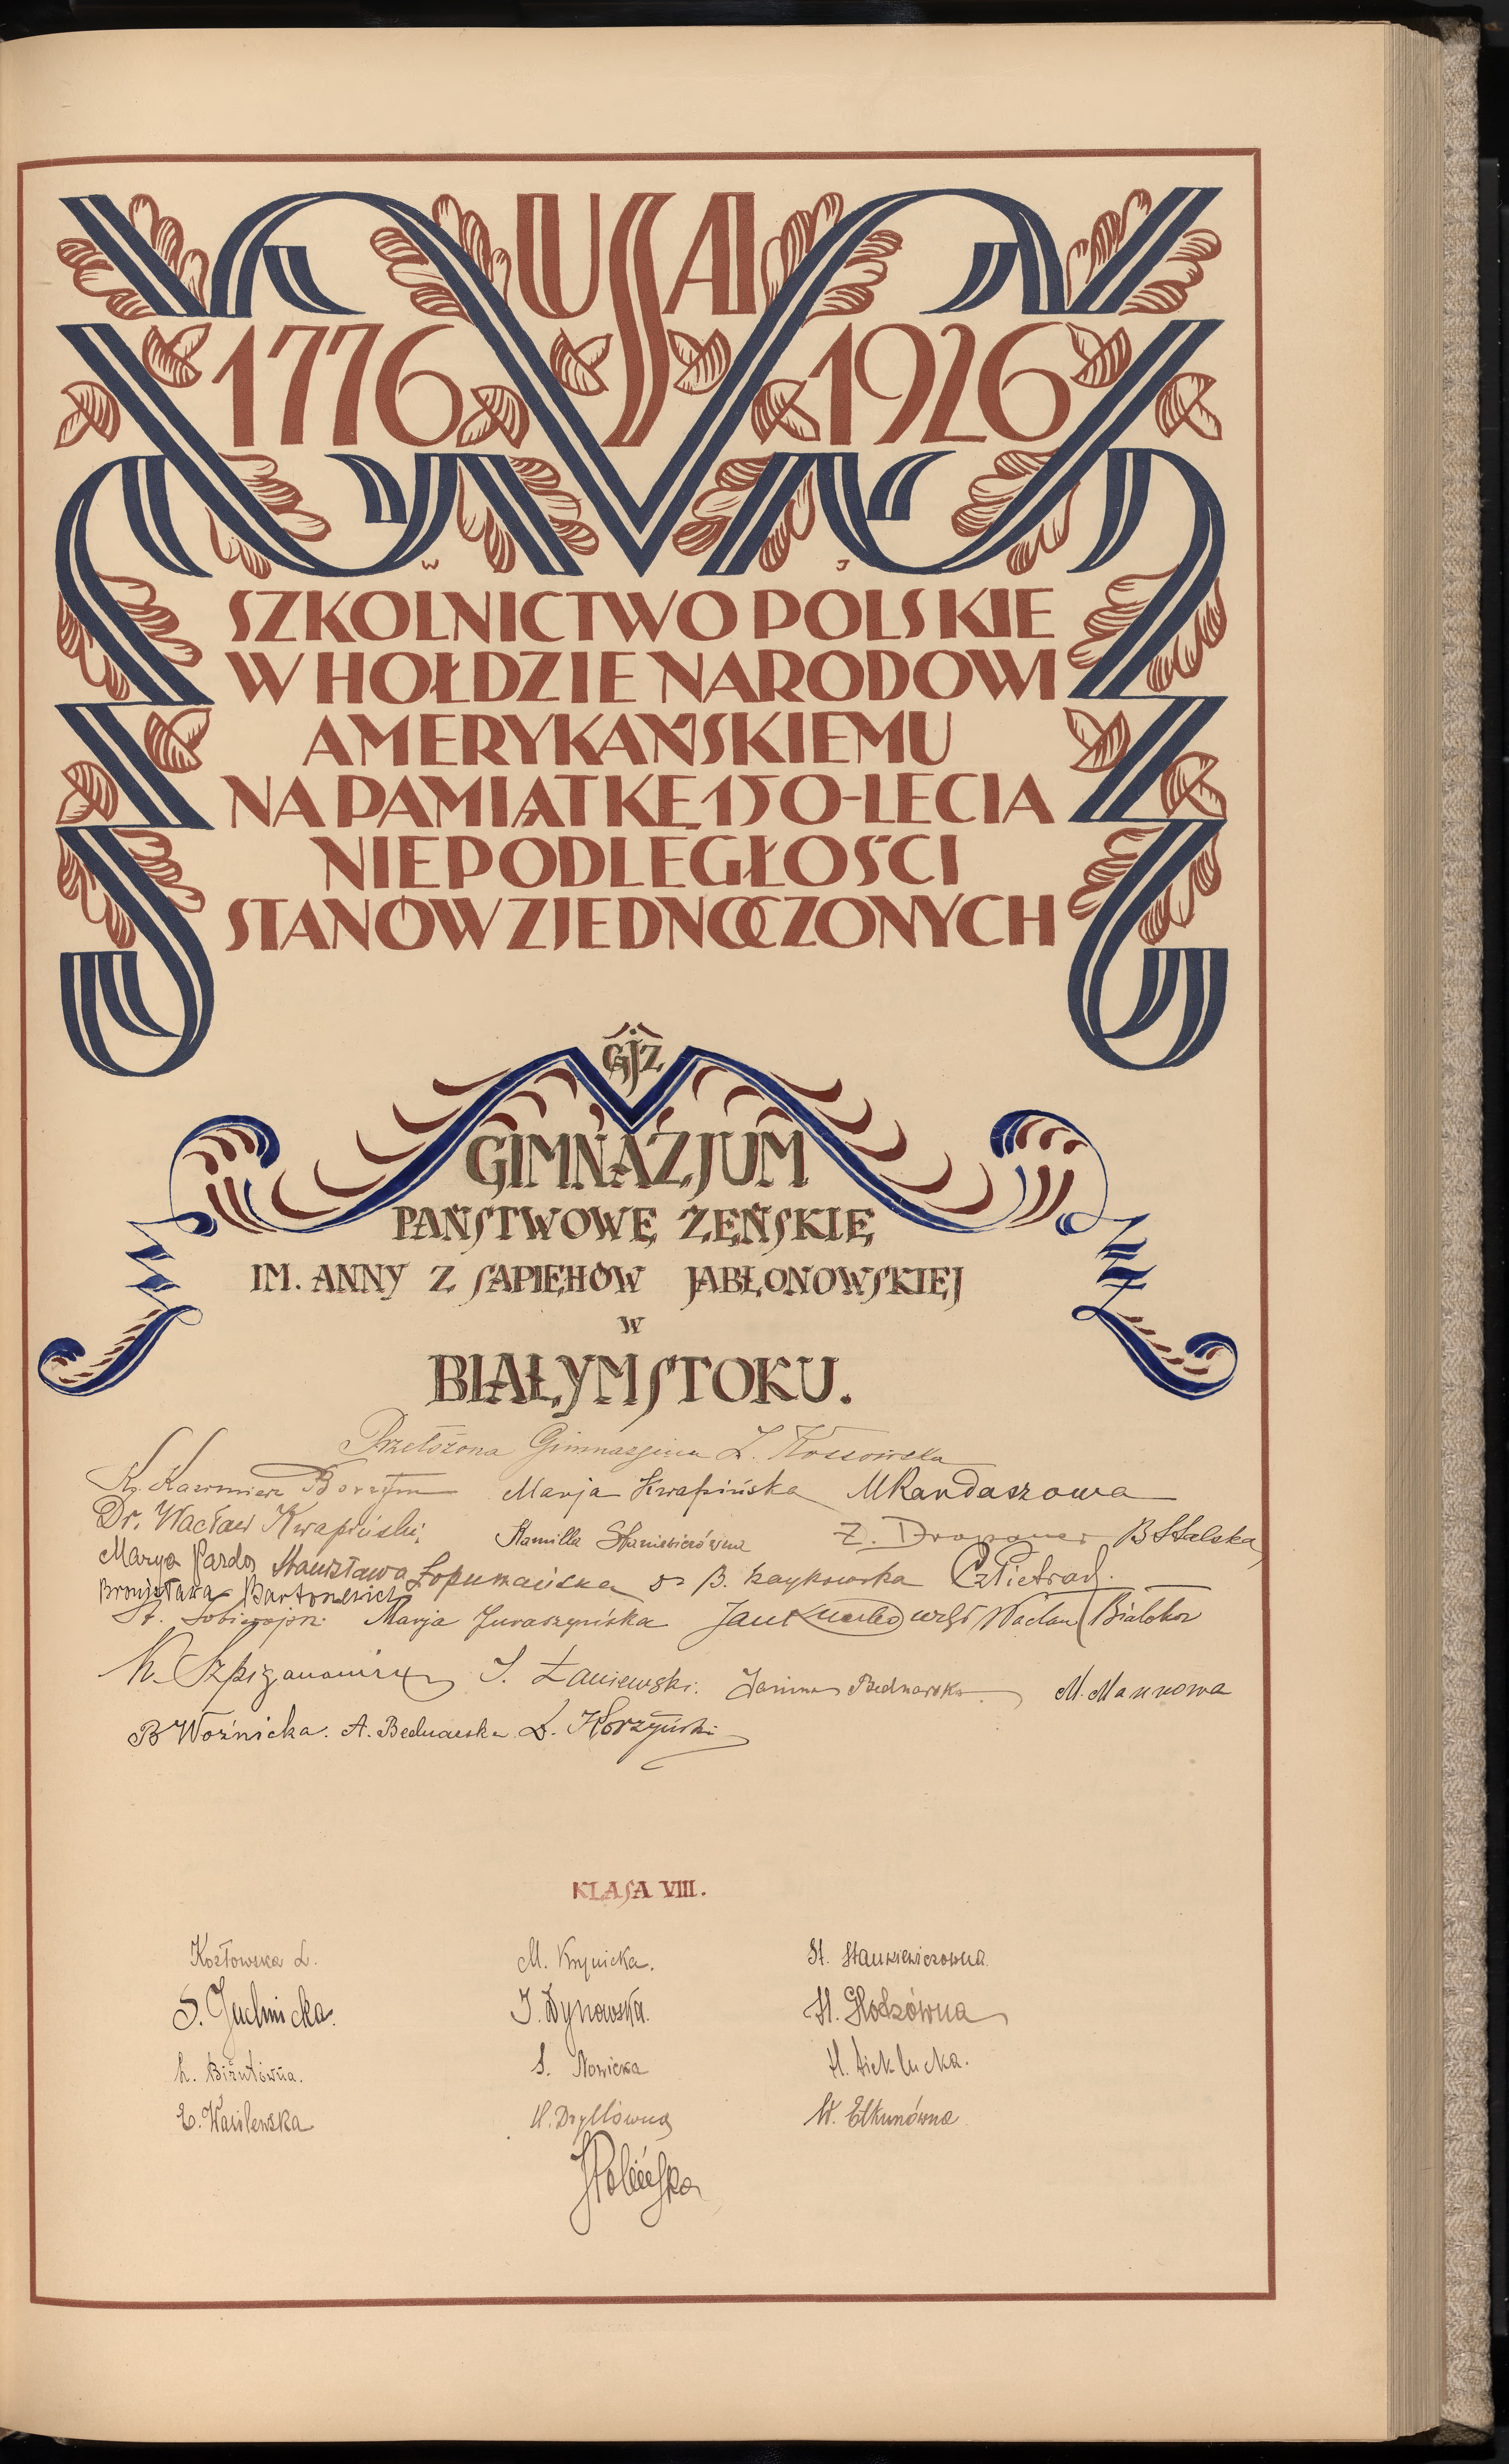 USA
1776 1926
W J
SZKOLNICTWO POLSKIE
W HOŁDZIE NARODOWI
AMERYKAŃSKIEMU
NA PAMIĄTKĘ 150-LECIA
NIEPODLEGŁOŚCI
STANÓW ZJEDNOCZONYCH
GJŻ
GIMNAZJUM
PAŃSTWOWE ŻEŃSKIE
IM. ANNY Z SAPIEHÓW JABŁONOWSKIEJ
W
BIAŁYMSTOKU.
Przełożona Gimnazjum
Ks. Kazimierz Marja Kwapińska MRandaszowa
Dr. Wacław Kwapiński, Kamilla Z. BStalska
Marya Pardo Stanisława Łopumańska B. Zaykowska
Bronisława Bartoszewicz
St. Marja Juraszyńska Jan Wacław Białokoz
J. Łaniewski. Janina Bednarska. M. Mannowa
B Woźnicka. A. Bednarska Korzyński
KLASA VIII.
Kozłowska L. M. Krynicka. St. Stankiewiczówna
S. Juchnicka. J. Dynowska. H. Głodzówna
L. Biżutówna. S. Nowicka H.
E. Wasilewska H. Dryllówna W. Elkunówna